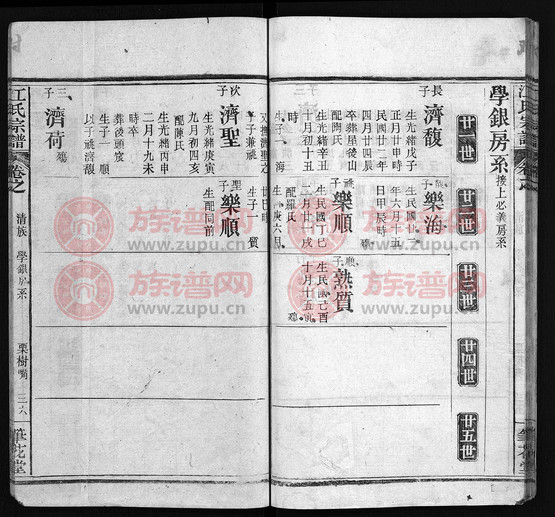 江氏宗譜
卷之
學銀房系
接上必義房系
廿一世
廿二世
廿三世
廿四世
廿五世
長子
濟馥
生光緒戊子
正月廿申時
民國廿二年
四月廿四辰
時卒葬星後山
配關氏
生光緒辛丑
十月初十
生子一 海
又撫濟聖之
子子兼祧
樂海
年六月十五
日甲辰時
祧子
樂順
生民國丁巳
二月廿一戌
配羅氏
順子
熱質
生民國己酉
十月十五
次子
濟聖
生光緒庚寅
九月初四亥
配陳氏
生光緒丙申
二月十九未
時卒
葬後頭窽
生子一 順
以子祧濟馥
聖子
樂順
生配同前
生子一 質
三子
濟荷
江氏宗譜
卷之
清族
學銀房系
栗樹嘴
三六
筆花堂
族谱网
www.zupu.cn